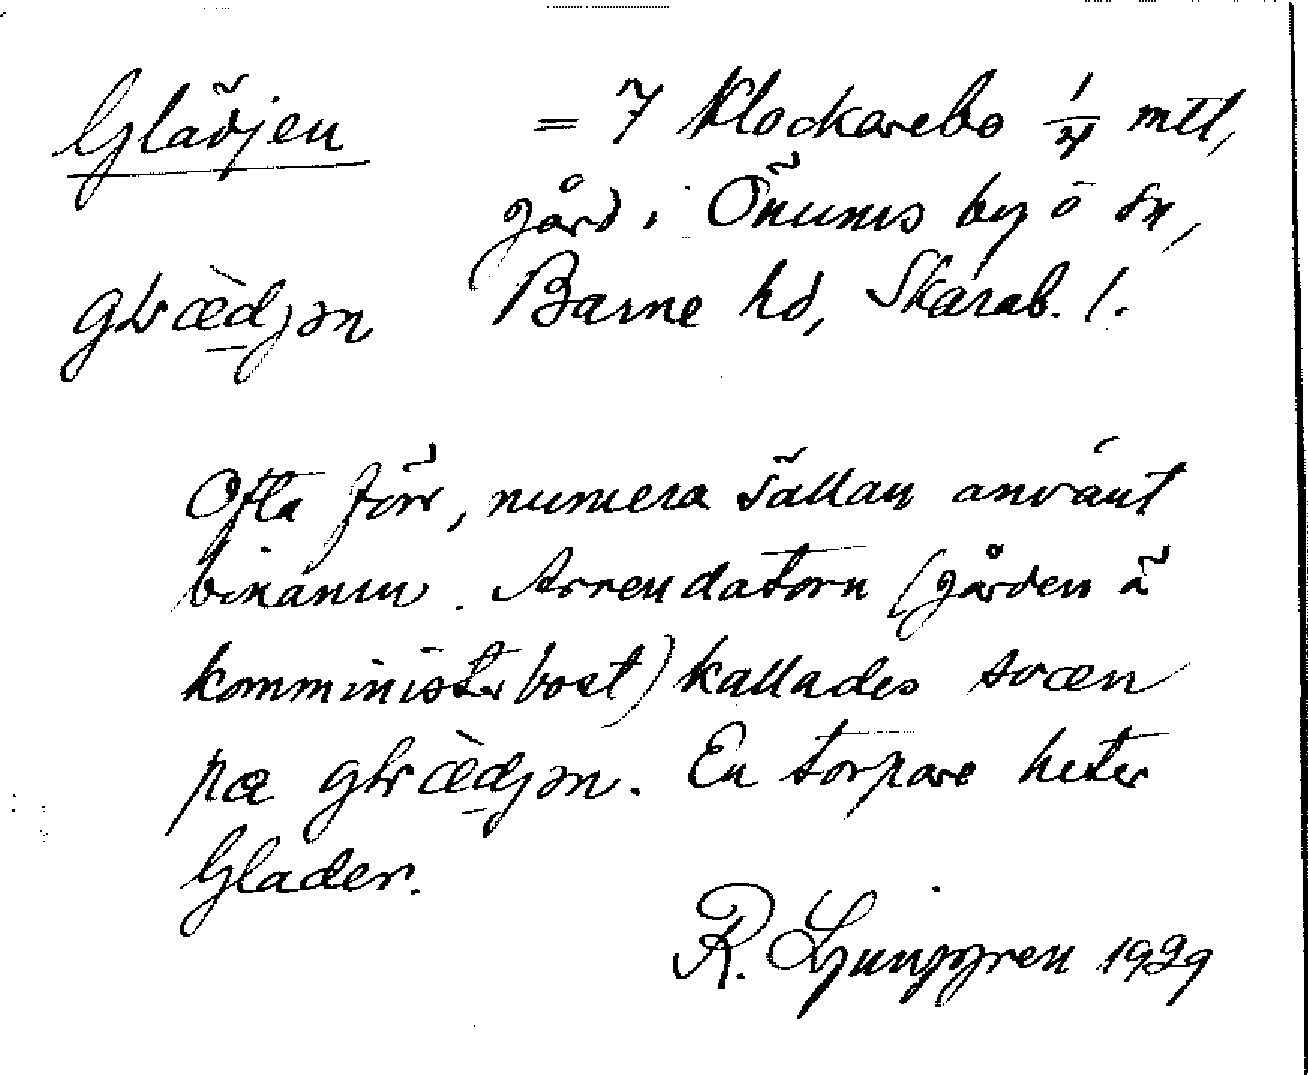 Glädjen = 7 Klockarebo 1/4 mtl,
gård i Önums by o sn,
glæ̀djən Barne hd, Skarab. l.
Ofta förr, numera sällan använt
binamn. Arrendatorn (gården ä
komministerbost) kallades svæn
pæ glæ̀djən. En torpare heter
Glader.
R. Ljunggren 1929